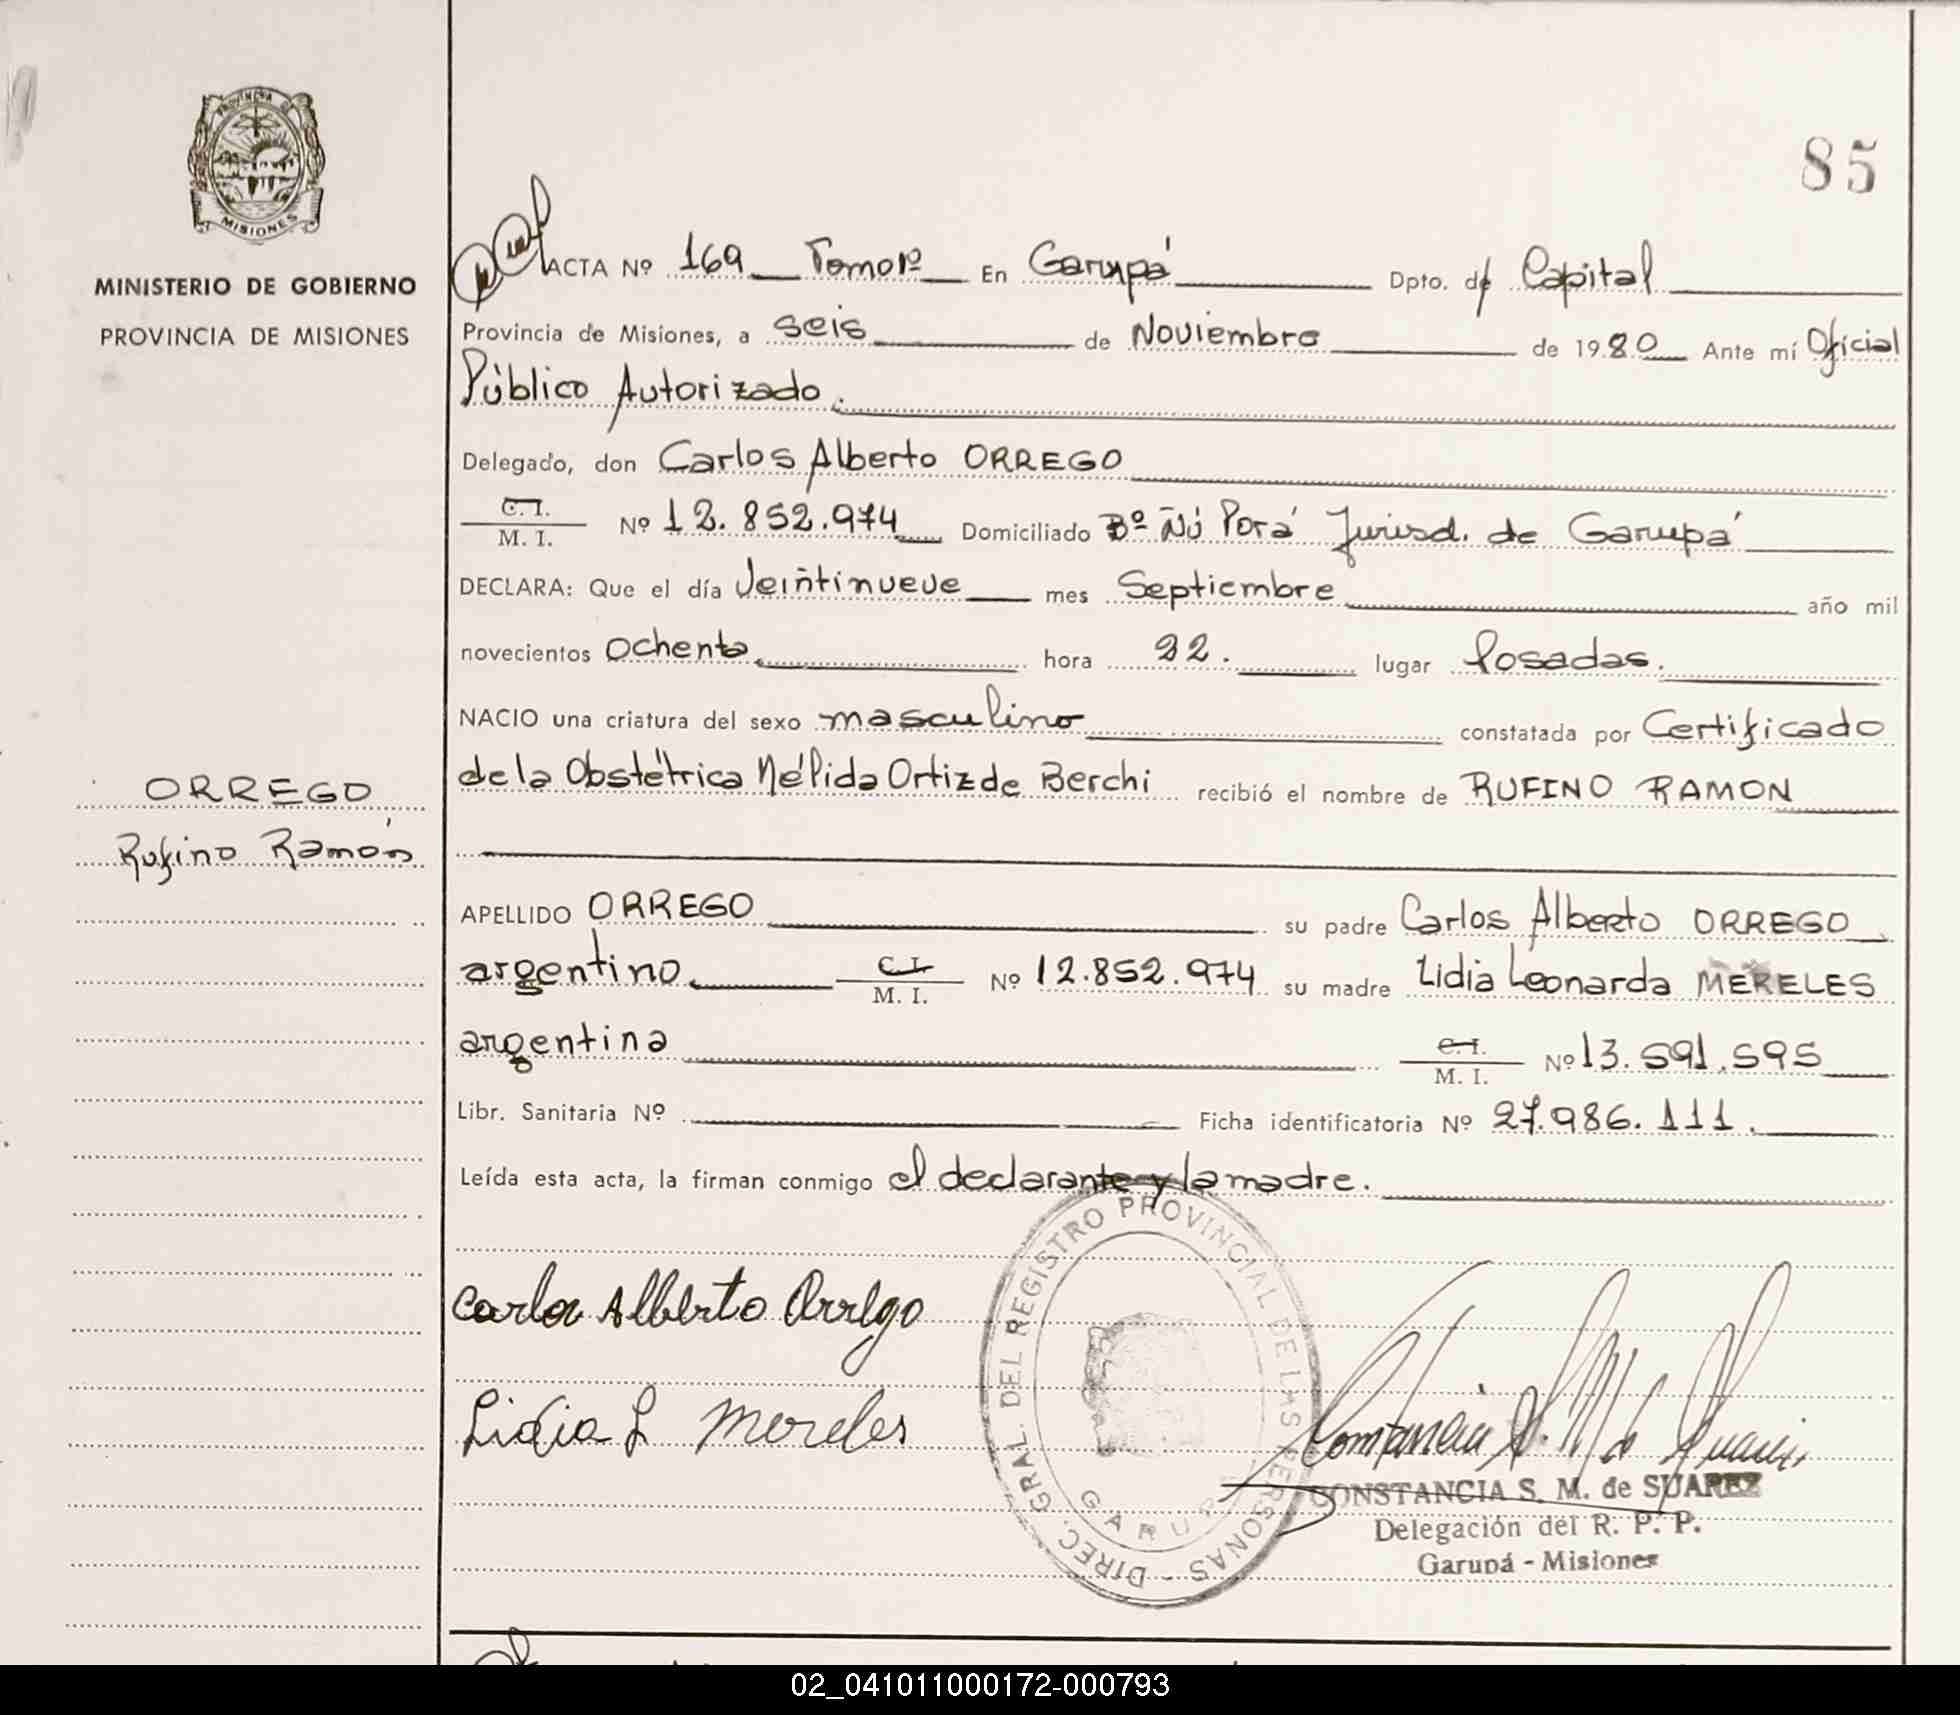 PROVINCIA DE
MISIONES
MINISTERIO DE GOBIERNO
PROVINCIA DE MISIONES
ORREGO
Rufino Ramón
85
ACTA Nº 169 Tomo 1º En Garupá Dpto. de Capital
Provincia de Misiones, a seis de Noviembre de 1980 Ante mí Oficial
Público Autorizado.
Delegado, don Carlos Alberto ORREGO
C. I.
M. I. Nº 12.852.974 Domiciliado Bº Ñú Porá Jurisd. de Garupá
DECLARA: Que el día Veintinueve mes Septiembre año mil
novecientos ochenta hora 22. lugar Posadas.
NACIO una criatura del sexo masculino constatada por Certificado
de la Obstétrica Nélida Ortiz de Berchi recibió el nombre de RUFINO RAMON
APELLIDO ORREGO su padre Carlos Alberto ORREGO
argentino. C. I.
M. I. Nº 12.852.974 su madre Lidia Leonarda MERELES
argentina C. I.
M. I. Nº 13.591.595
Libr. Sanitaria Nº Ficha identificatoria Nº 27.986.111.
Leída esta acta, la firman conmigo el declarante y la madre.
Carlos Alberto Orrego
Lidia L Mereles
DIREC. GRAL. DEL REGISTRO PROVINCIAL DE LAS PERSONAS -
GARUP
Constancia S. M. de Suarez
CONSTANCIA S. M. de SUAREZ
Delegación del R. P. P.
Garupá - Misiones
02_041011000172-000793